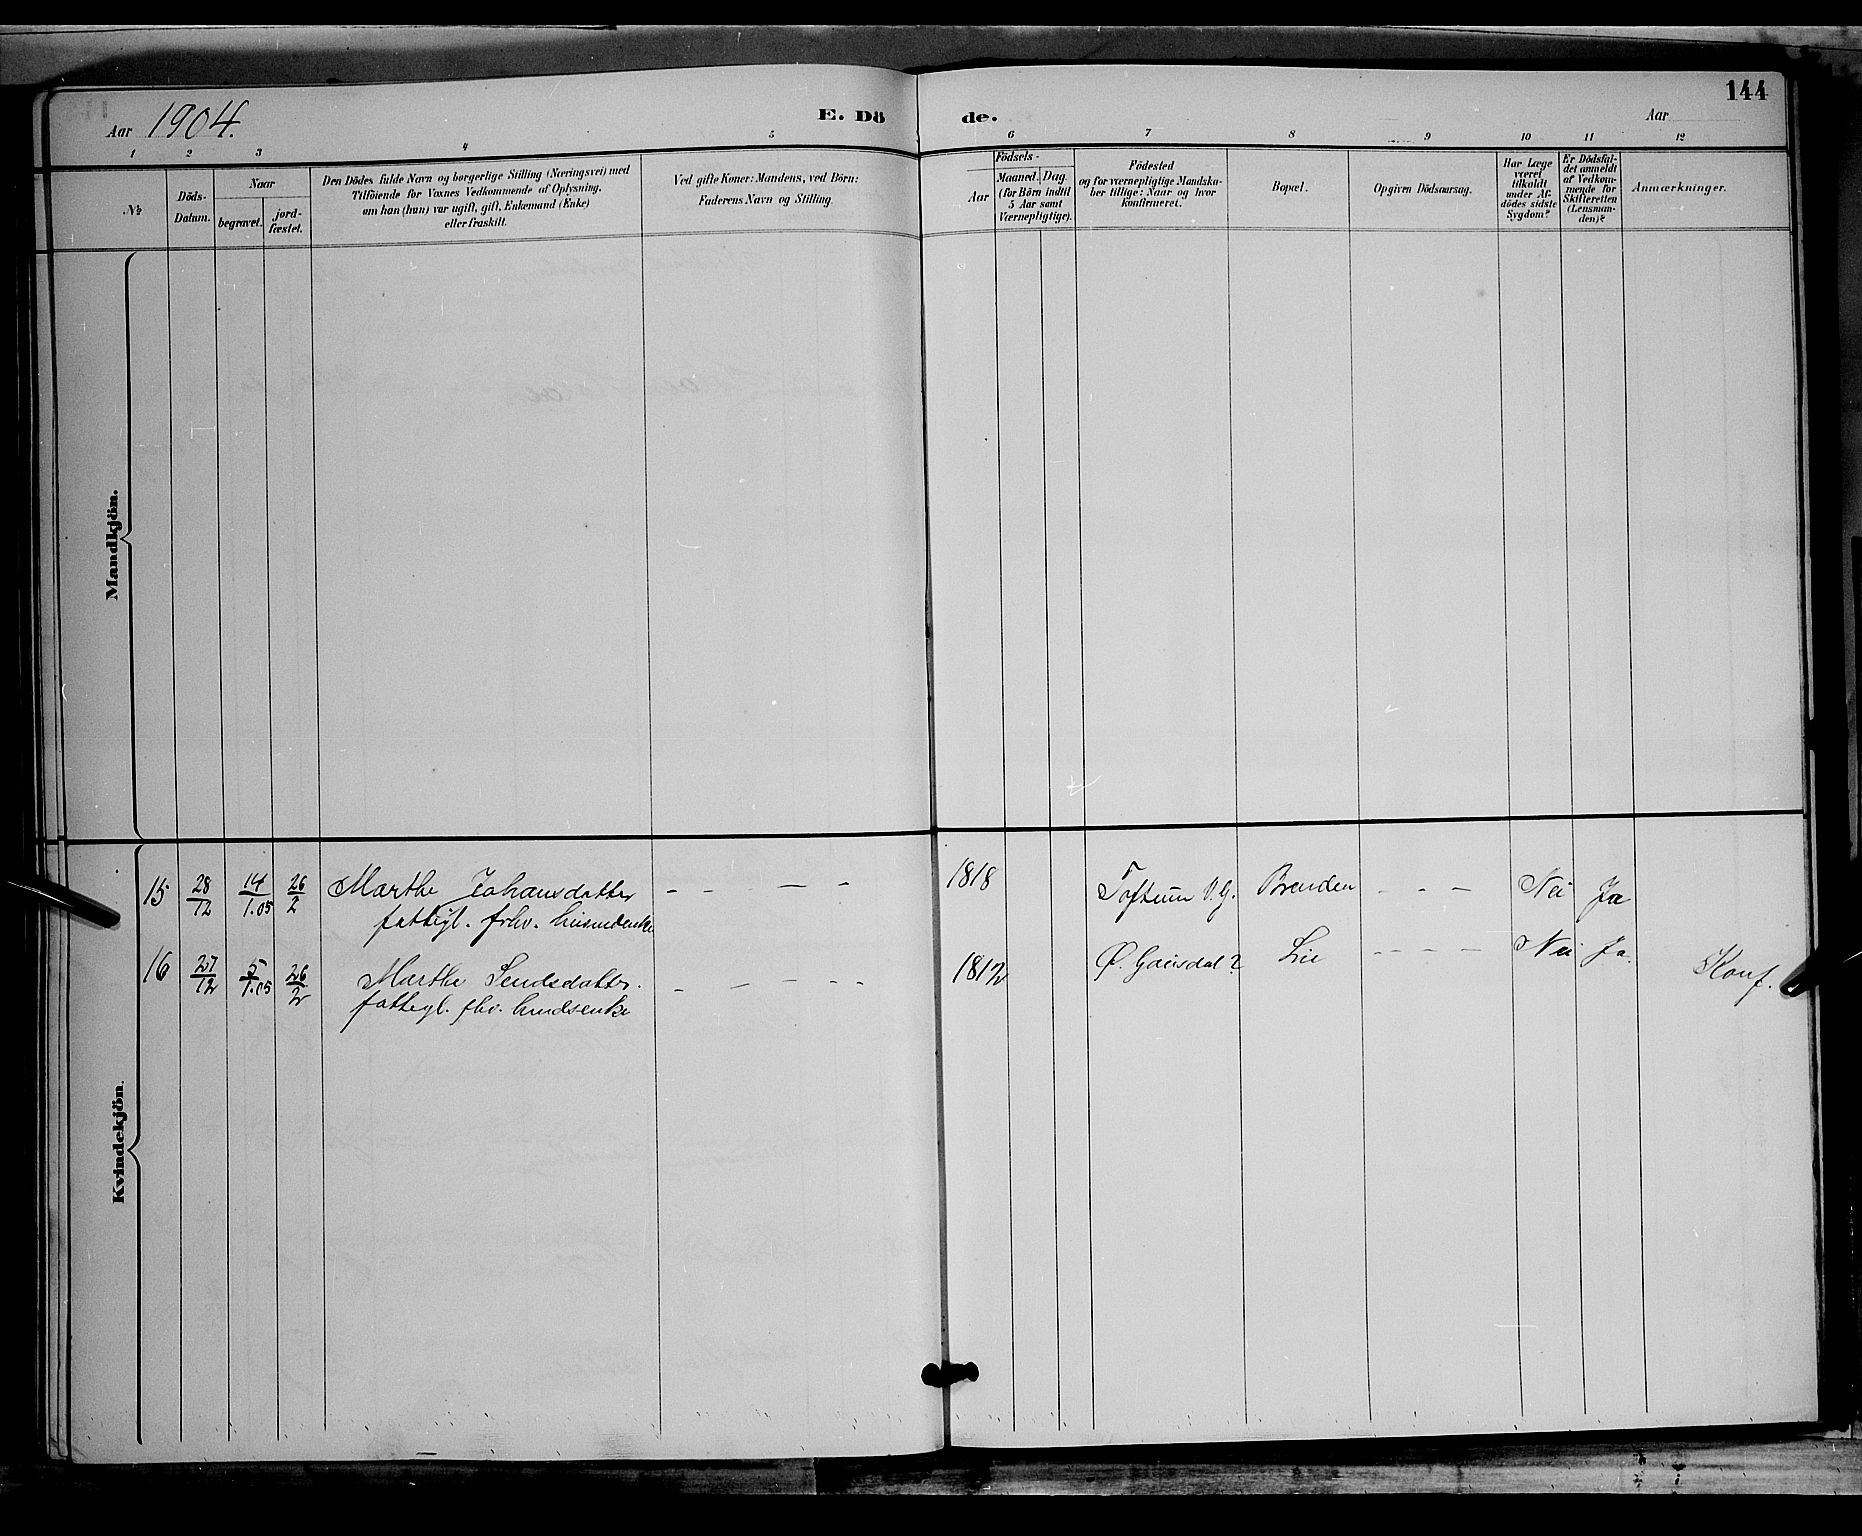 144
Aar 1904. E. Dö de. Aar
1 2 3 4 5 6 7 8 9 10 11 12
№
Döds-
Datum.
Naar
begravet.
jord-
fæstet.
Den Dödes fulde Navn og borgerlige Stilling (Næringsvei) med
Tilföiende for Voxnes Vedkommende af Oplysning,
om han (hun) var ugift, gift, Enkemand (Enke)
eller fraskilt.
Ved gifte Koner: Mandens, ved Börn:
Faderens Navn og Stilling.
Födsels-
Aar
Maaned. Dag.
(for Börn indtil
5 Aar samt
Værnepligtige).
Födested
og for værnepligtige Mandska-
ber tillige: Naar og hvor
konfirmeret.
Bopæl.
Opgiven Dödsaarsag.
Har Læge
været
tilkaldt
under Af-
dödes sidste
Sygdom?
Er Dödsfal-
det anmeldt
af Vedkom-
mende for
Skifteretten
(Lensman-
den)?
Anmærkninger.
Mandkjön.
Kvindekjön.
15 28/12 14/1.05 26/2 Marthe Johansdatter - - - - - 1818 Toftum V.G. Brenden - - - Nei Ja
fattigl. frhv. husmdenke
16 27/12 5/1.05 26/2 Marthe Sendsdatter. - - - - - 1812 Ø. Gausdal? Lie - - - - Nei Ja. Konf.
fattigl. fhv.